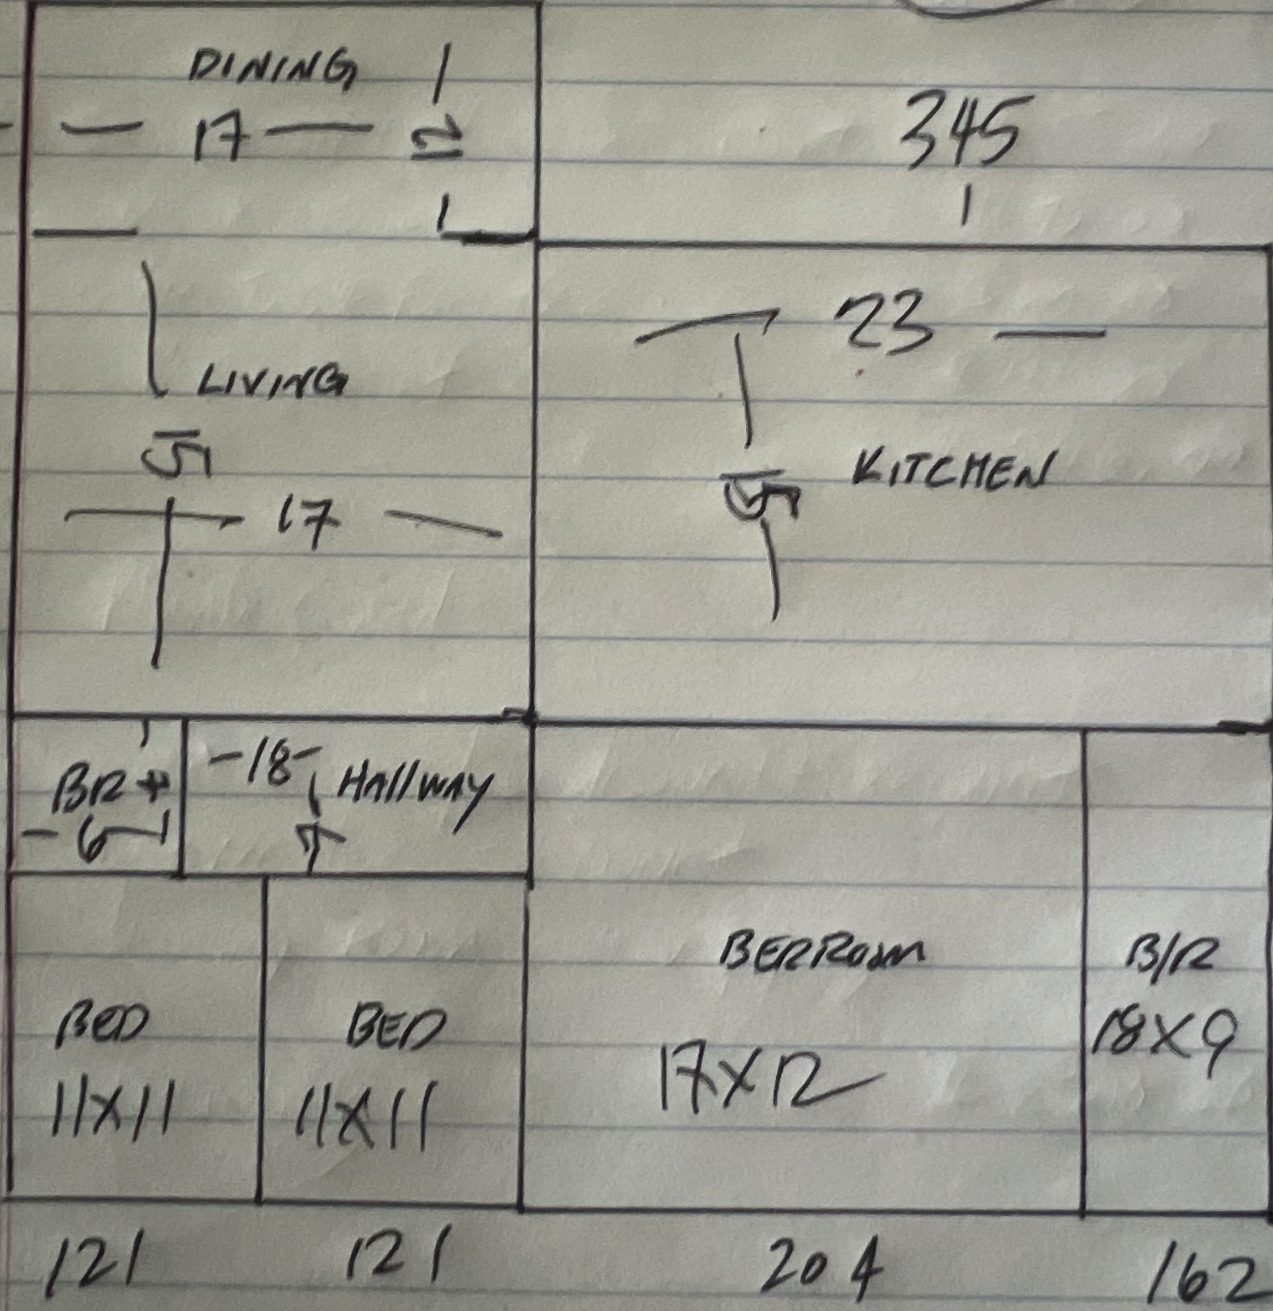 DINING
17
12
345
23
LIVING
15
17
KITCHEN
15
BR
6
18
HALLWAY
7
BED
11X11
BED
11X11
BERROOM
17X12
B/R
18X9
121
121
204
162